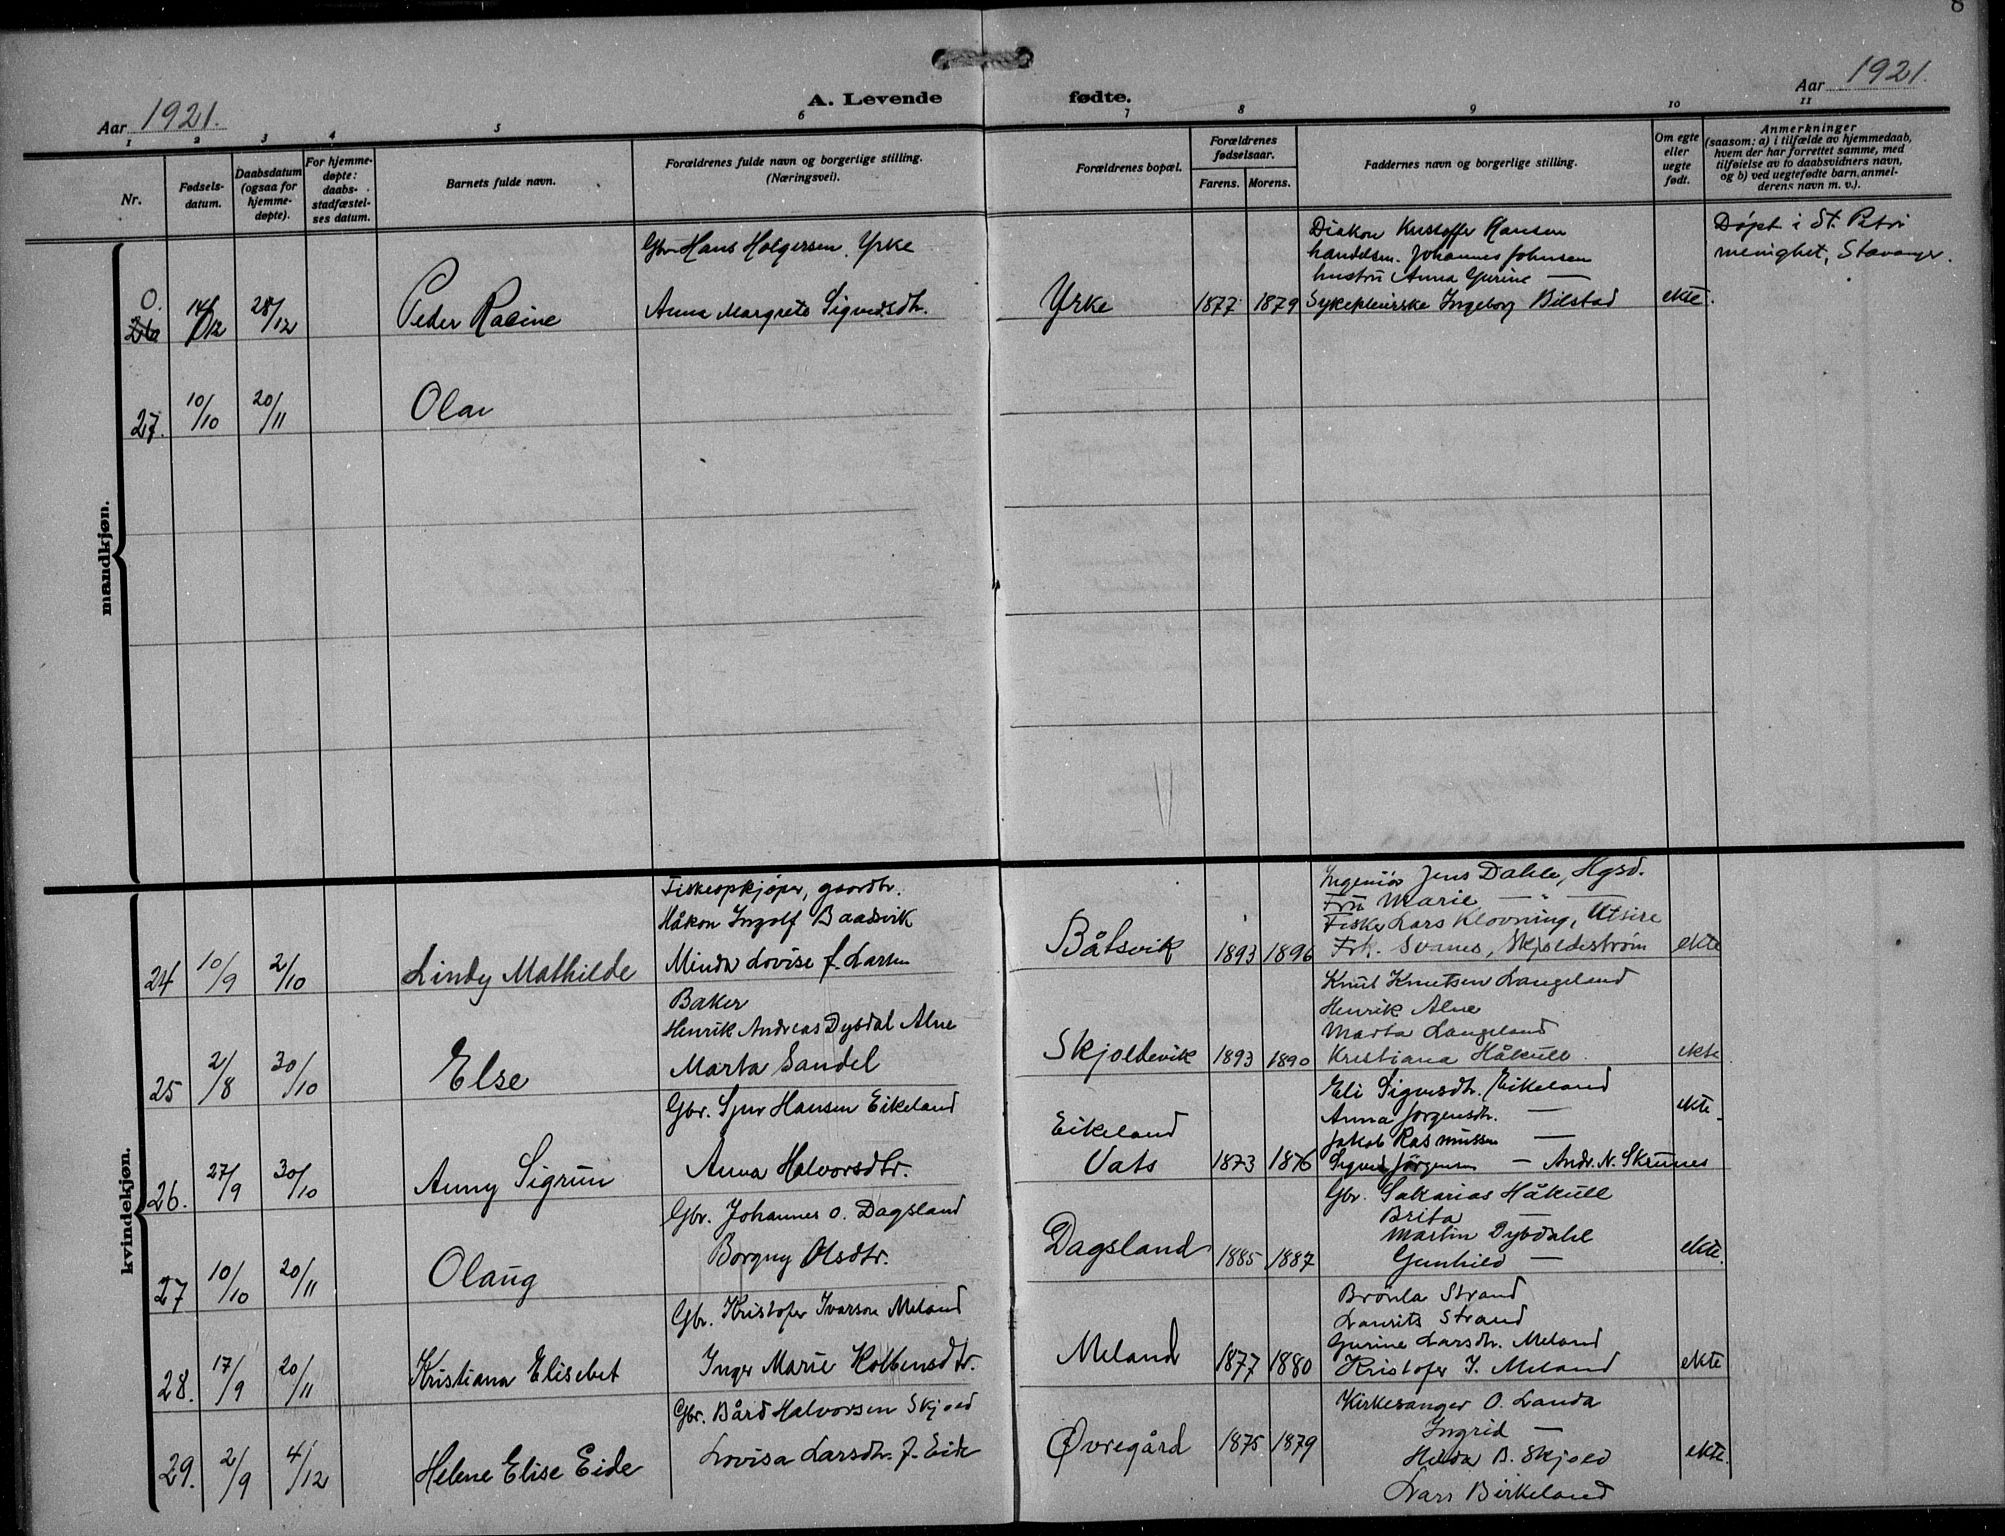 8
Aar 1921.
A. Levende fødte.
Aar 1921.
1 2 3 4 5 6 7 8 9 10 11
Nr.
Fødsels-
datum.
Daabsdatum
(ogsaa for
hjemme-
døpte).
For hjemme-
døpte:
daabs-
stadfæstel-
ses datum.
Barnets fulde navn.
Forældrenes fulde navn og borgerlige stilling.
(Næringsvei).
Forældrenes bopæl.
Forældrenes
fødselsaar.
Farens. Morens.
Faddernes navn og borgerlige stilling.
Om egte
eller
uegte
født.
Anmerkninger
(saasom: a) i tilfælde av hjemmedaab,
hvem der har forrettet samme, med
tilføielse av to daabsvidners navn,
og b) ved uegtefødte barn, anmel-
derens navn m. v.).
mandkjøn.
0.
26
14/12
28/12
Peder Racine
Gbr Hans Holgersen Yrke
Anna Margrete Sigvedsdtr.
Yrke
1877 1879
Diakon Kristoffer Hansen
handelsm. Johannes Johnsen
hustru Anna Gurine —
Sykepleierske Ingeborg Bilstad
ekte.
Døpt i St. Petri
menighet, Stavanger.
27. 10/10 20/11 Olav
kvindekjøn.
24 10/9 2/10 Lindy Mathilde
Fiskeopkjøper, gaardbr.
Håkon Ingolf Baadsvik
Minda Lovise f. Larsen
Båtsvik
1893 1896
Ingeniør Jens Dahle, Hgsd.
Fru Marie — " —
Fisker Lars Klovning, Utsire
Frk. Svanes, Skjoldestrøm
ekte
25 2/8 30/10 Else
Baker
Henrik Andreas Dybdal Alne
Marta Sandel
Skjoldevik
1893 1890
Knut Knutsen Langeland
Henrik Alne
Marta Langeland
Kristiana Håkull
ekte
26. 27/9 30/10 Anny Sigrun
Gbr. Sjur Hansen Eikeland
Anna Halvorsdtr.
Eikeland
Vats
1873 1876
Eli Sigvesdtr. Eikeland
Anna Jørgensdtr. —
Jakob Rasmussen —
Sigved Jörgensen — Andr. N. Skrunes
ekte.
27 10/10 20/11 Olaug
Gbr. Johannes O. Dagsland
Borgny Olsdtr.
Dagsland
1885 1887
Gbr. Sakarias Håkull
Brita —
Martin Dybdahl
Gunhild —
ekte.
28. 17/9 20/11 Kristiana Elisebet
Gbr. Kristofer Ivarson Meland
Inger Marie Kolbensdtr.
Meland
1877 1880
Bronla Strand
Laurits Strand
Gurine Larsdtr. Meland
Kristofer I. Meland
ekte
29. 2/9 4/12 Helene Elise Eide
Gbr. Bård Halvorsen Skjold
Lovisa Larsdtr. f. Eide
Øvregård
1875 1879
Kirkesanger O. Landa
Ingrid —
Helda B. Skjold
Lars Birkeland
ekte.